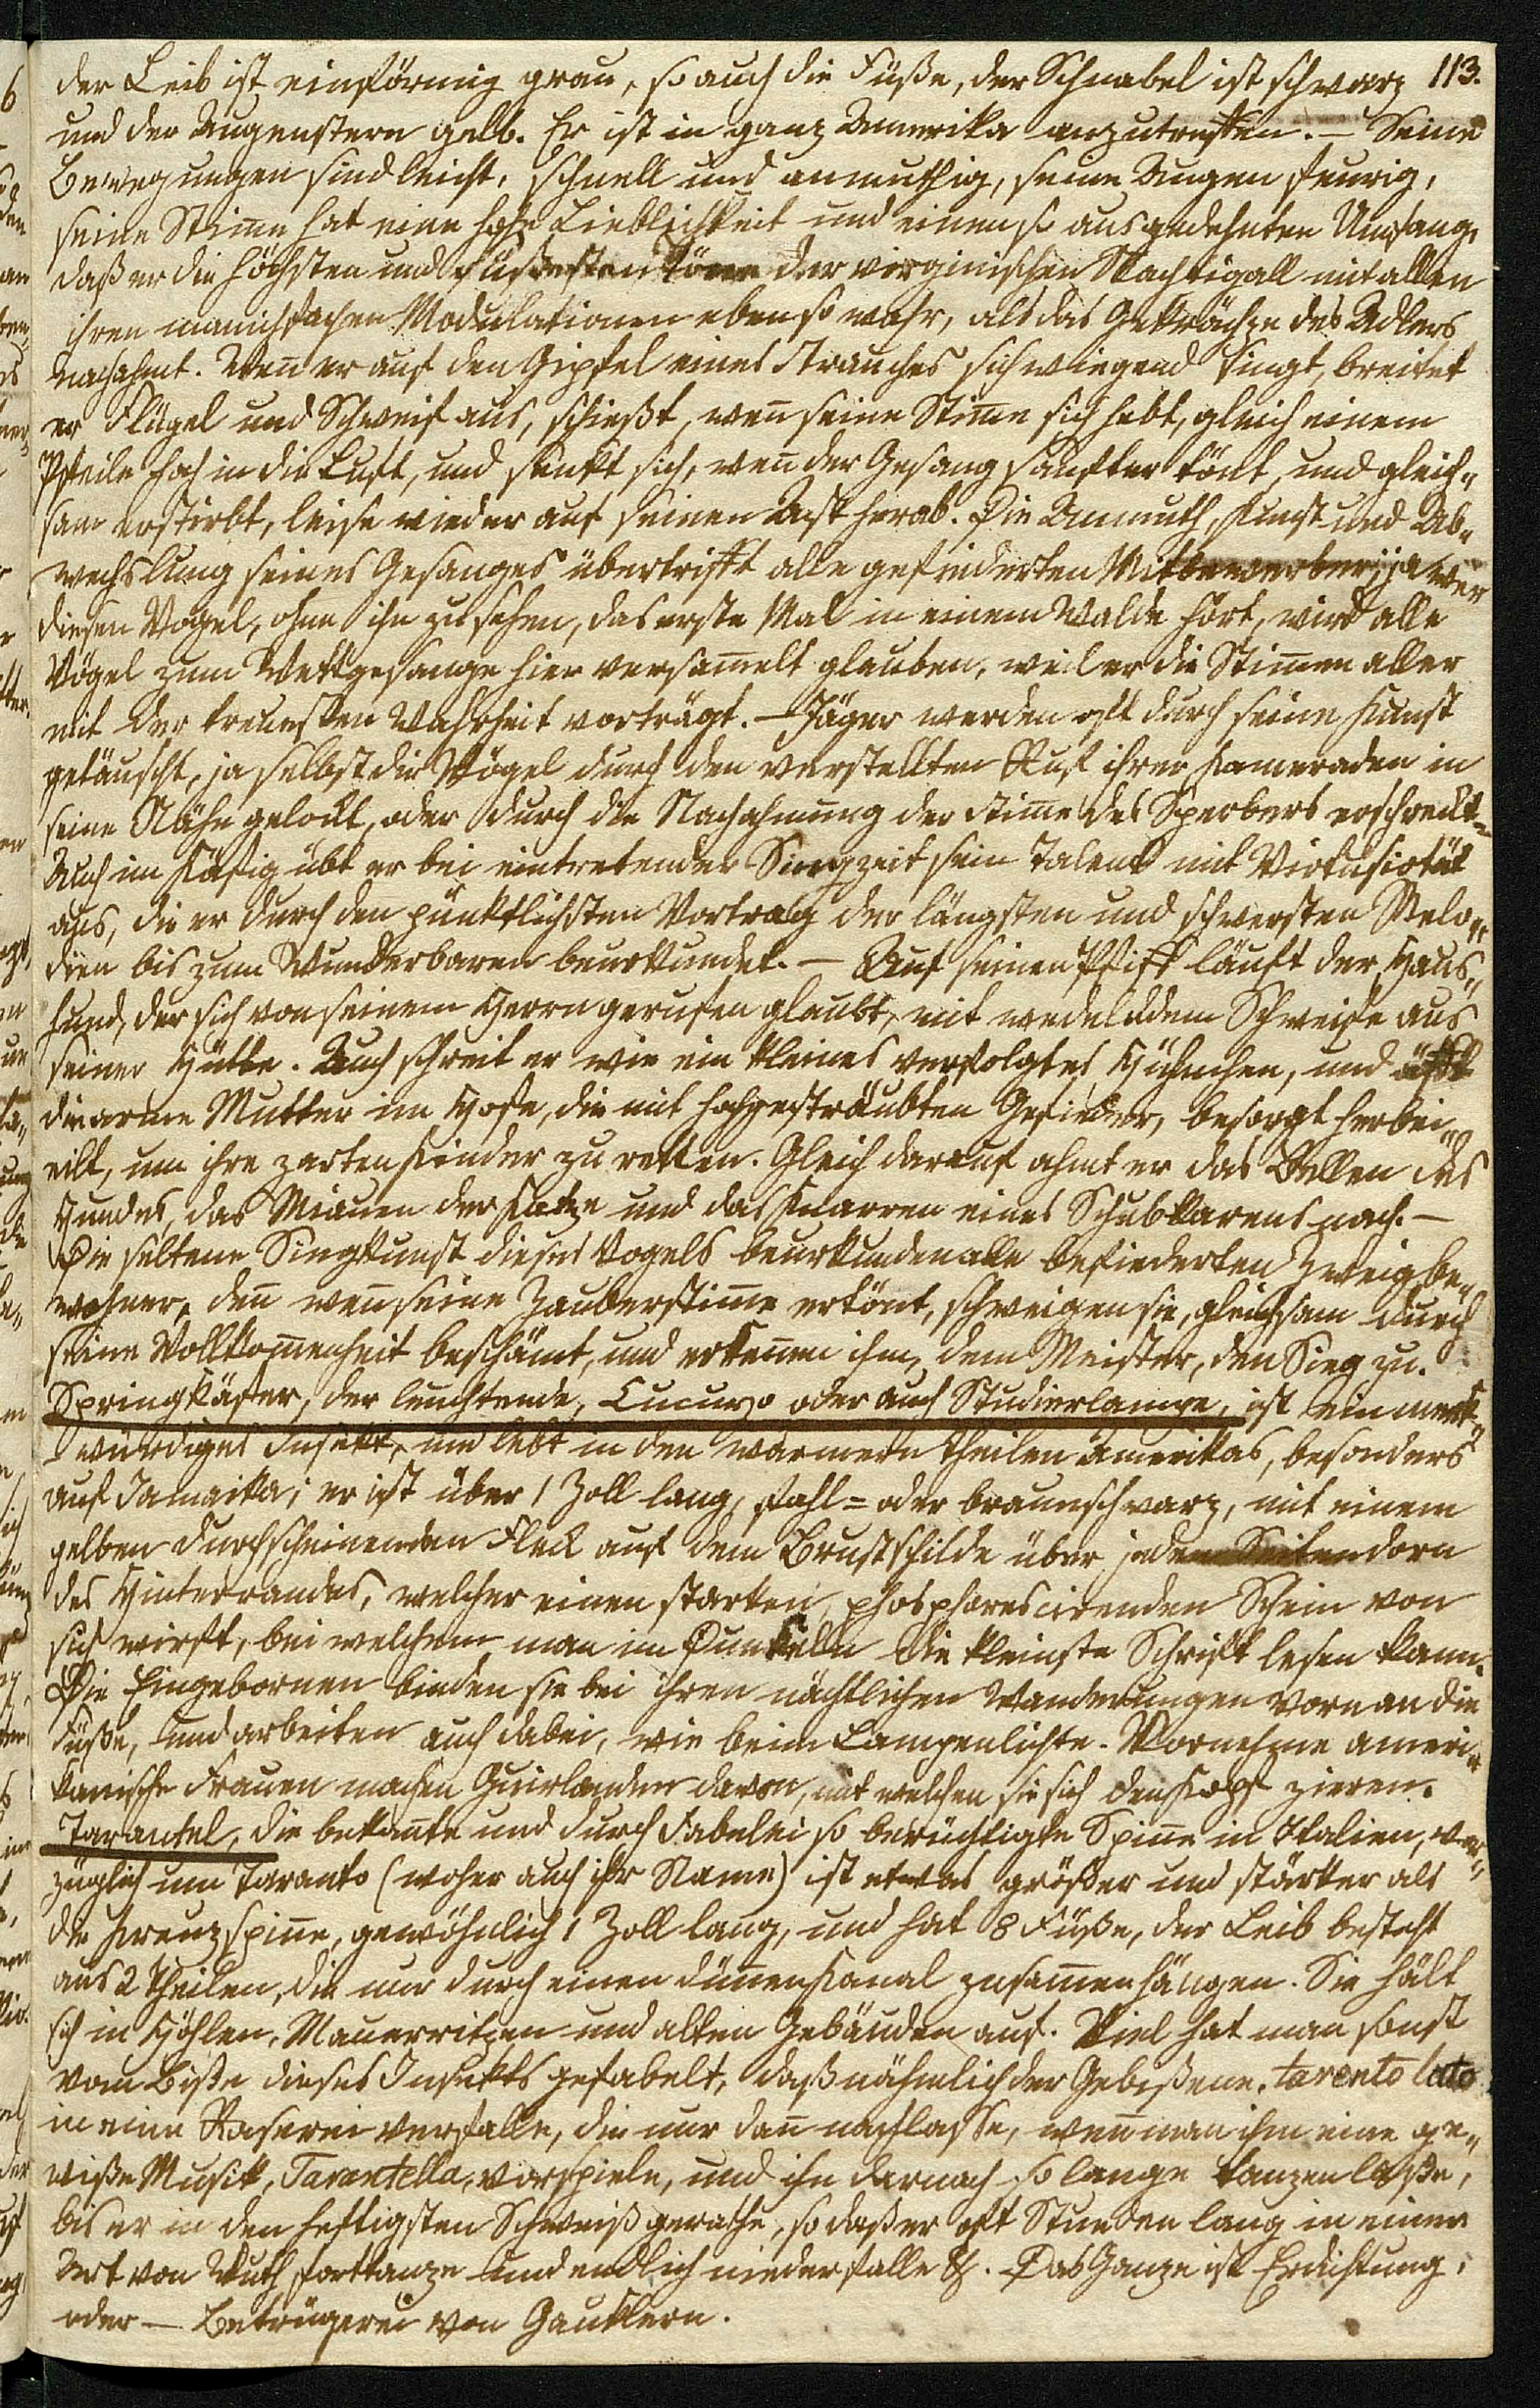 der Leib ist einförmig grau, so auch die Füße, der Schnabel ist schwarz 113.
und der Augenstern gelb. Er ist in ganz Amerika anzutreffen. – Seine
Bewegungen sind leicht, schnell und anmuthig, seine Augen feurig,
seine Stim̅e hat eine hohe Lieblichkeit und einen so ausgedehnten Umfang,
daß er die höchsten und süßesten Töne der virginischen Nachtigall mit allen
ihren manichfachen Modulationen eben so wahr, als das Gekrächze des Adlers
nachahmt. Wen̅ er auf den Gipfel eines Strauches sich wiegend singt, breitet
er Flügel und Schweif aus, schießt, wen̅ seine Stim̅e sich hebt, gleich einem
Pfeile hoch in die Luft, und senkt sich, wen̅ der Gesang sanfter tönt, und gleich„
sam erstirbt, leise wieder auf seinen Ast herab. Die Anmuth, Kunst und Ab„
wechslung seines Gesanges übertrifft alle gefiederten Mitbewerber; ja wer
diesen Vogel, ohne ihn zu sehen, das erste Mal in einem Walde hört, wird alle
Vögel zum Wettgesange hier versam̅elt glauben, weil er die Stim̅en aller
mit der treuesten Wahrheit vorträgt. – Jäger werden oft durch seine Kunst
getäuscht, ja selbst die Vögel durch den verstellten Ruf ihrer Kameraden in
seine Nähe gelockt, oder durch die Nachahmung der Stim̅e des Sperbers erschreckt.
Auch im Käfig übt er bei eintretender Singzeit sein Talent mit Virtuosität
aus, die er durch den pünktlichsten Vortrag der längsten und schwersten Melo„
dien bis zum Wunderbaren beurkundet. – Auf seinen Pfiff läuft der Haus„
hund, der sich von seinem Herrn gerufen glaubt, mit wedelddem Schweife aus
seiner Hütte. Auch schreit er wie ein kleines verfolgtes Hühnchen, und äfft
die arme Mutter im Hofe, die mit hochgesträubten Gefieder, besorgt herbei„
eilt, um ihre zarten Kinder zu retten. Gleich darauf ahmt er das Bellen des
Hundes, das Miauen der Katze und das Knarren eines Schubkarens nach. –
Die seltene Singkunst dieses Vogels beurkunden alle befiederten Zweigbe„
wohner, den̅ wen̅ seine Zauberstim̅e ertönt, schweigen sie, gleichsam durch
seine Vollkom̅enheit beschämt, und erken̅en ihm, dem Meister, den Sieg zu.
Springkäfer, der leuchtende, Cucuyo oder auch Studierlampe, ist ein merk„
würdiges Insekt, und lebt in den wärmern Theilen Amerikas, besonders
auf Jamaika; er ist über 1 Zoll lang, stahl= oder braunschwarz, mit einem
gelben durchscheinenden Fleck auf dem Brustschilde über jedem Seitendorn
des Hinterrandes, welcher einen starken, phosphorescirenden Schein von
sich wirft, bei welchem man im Dunkeln die kleinste Schrift lesen kann.
Die Eingebornen binden sie bei ihren nächtlichen Wanderungen vorn an die
Füße, und arbeiten auch dabei, wie beim Lampenlichte. Vornehme ameri„
kanische Frauen machen Guirlanden davon, mit welchen sie sich den Kopf zieren.
Tarantel, die bekan̅te und durch Fabelei so berüchtigte Spin̅e in Italien, vor„
züglich um Taranto (woher auch ihr Name) ist etwas größer und stärker als
die Kreuzspin̅e, gewöhnlich 1 Zoll lang, und hat 8 Füße, der Leib besteht
aus 2 Theilen, die nur durch einen dün̅en Kanal zusam̅enhängen. Sie hält
sich in Höhlen, Mauerritzen und alten Gebäuden auf. Viel hat man sonst
vom Biße dieses Insekts gefabelt, daß nähmlich der Gebißene,
in eine Raserei verfalle, die nur dan̅ nachlasse, wen̅ man ihm eine ge„
wiße Musik, Tarantella, vorspiele, und ihn darnach so lange tanzen laße,
bis er in den heftigsten Schweiß gerathe, so daß er oft Stunden lang in einer
Art von Wuth forttanze und endlich niederfalle &. Das Ganze ist Erdichtung,
oder – Betrügerei von Gauklern.